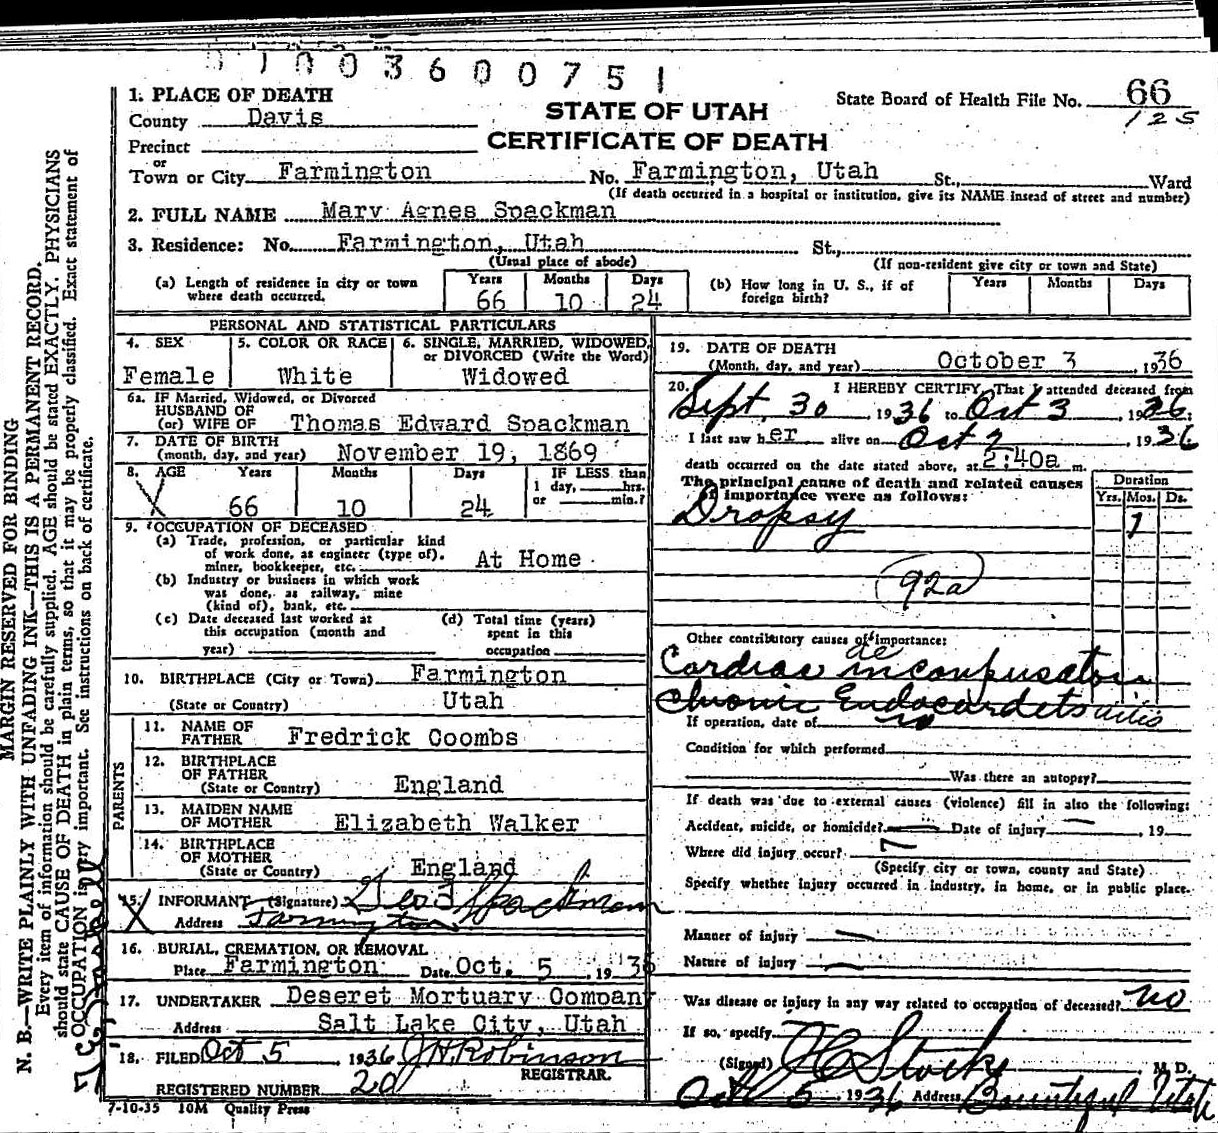 01003600751
1. PLACE OF DEATH
County Davis
Precinct
or
Town or City Farmington
STATE OF UTAH
CERTIFICATE OF DEATH
State Board of Health File No. 66
125
No. Farmington, Utah St., Ward
(If death occurred in a hospital or institution, give its NAME insead of street and number)
2. FULL NAME Mary Agnes Spackman
3. Residence: No. Farmington, Utah St.,
(Usual place of abode)
(If non-resident give city or town and State)
(a) Length of residence in city or town where death occurred.
Years Months Days
66 10 24
(b) How long in U. S., if of foreign birth?
Years Months Days
PERSONAL AND STATISTICAL PARTICULARS
4. SEX
Female
5. COLOR OR RACE
White
6. SINGLE, MARRIED, WIDOWED,
or DIVORCED (Write the Word)
Widowed
6a. IF Married, Widowed, or Divorced
HUSBAND OF
(or) WIFE OF Thomas Edward Spackman
7. DATE OF BIRTH
(month, day, and year) November 19, 1869
8. AGE Years Months Days
66 10 24
IF LESS than
1 day, hrs.
or min.?
9. OCCUPATION OF DECEASED
(a) Trade, profession, or particular kind
of work done, as engineer (type of).
miner, bookkeeper, etc. At Home
(b) Industry or business in which work
was done, as railway, mine
(kind of), bank, etc.
(c) Date deceased last worked at
this occupation (month and
year)
(d) Total time (years)
spent in this
occupation
10. BIRTHPLACE (City or Town) Farmington
(State or Country) Utah
PARENTS
11. NAME OF
FATHER Fredrick Coombs
12. BIRTHPLACE
OF FATHER
(State or Country) England
13. MAIDEN NAME
OF MOTHER Elizabeth Walker
14. BIRTHPLACE
OF MOTHER
(State or Country) England
15. INFORMANT (Signature) Geo T Spackman
Address Farmington
16. BURIAL, CREMATION, OR REMOVAL
Place Farmington Date Oct. 5 1936
17. UNDERTAKER Deseret Mortuary Company
Address Salt Lake City, Utah
18. FILED Oct 5 1936 J H Robinson
REGISTRAR.
REGISTERED NUMBER 20
7-10-35 10M Quality Press
19. DATE OF DEATH
(Month, day, and year) October 3, 1936
20. I HEREBY CERTIFY, That I attended deceased from
Sept. 30, 1936 to Oct 3, 1936
I last saw her alive on Oct 2, 1936
death occurred on the date stated above, at 2:40a m.
The principal cause of death and related causes
of importance were as follows:
Duration
Yrs. Mos. Ds.
Dropsy 1
92a
Other contributory causes of importance:
de
Cardiac incompensation
Chronic Endocardets uitis
If operation, date of no
Condition for which performed
Was there an autopsy?
If death was due to external causes (violence) fill in also the following:
Accident, suicide, or homicide? Date of injury , 19
Where did injury occur?
(Specify city or town, county and State)
Specify whether injury occurred in industry, in home, or in public place.
Manner of injury
Nature of injury
Was disease or injury in any way related to occupation of deceased? no
If so, specify
(Signed) Stocks M. D.
Oct 5, 1936 Address Bountiful Utah
MARGIN RESERVED FOR BINDING
N. B.—WRITE PLAINLY WITH UNFADING INK—THIS IS A PERMANENT RECORD.
Every item of information should be carefully supplied. AGE should be stated EXACTLY. PHYSICIANS
should state CAUSE OF DEATH in plain terms, so that it may be properly classified. Exact statement of
OCCUPATION is very important. See instructions on back of certificate.